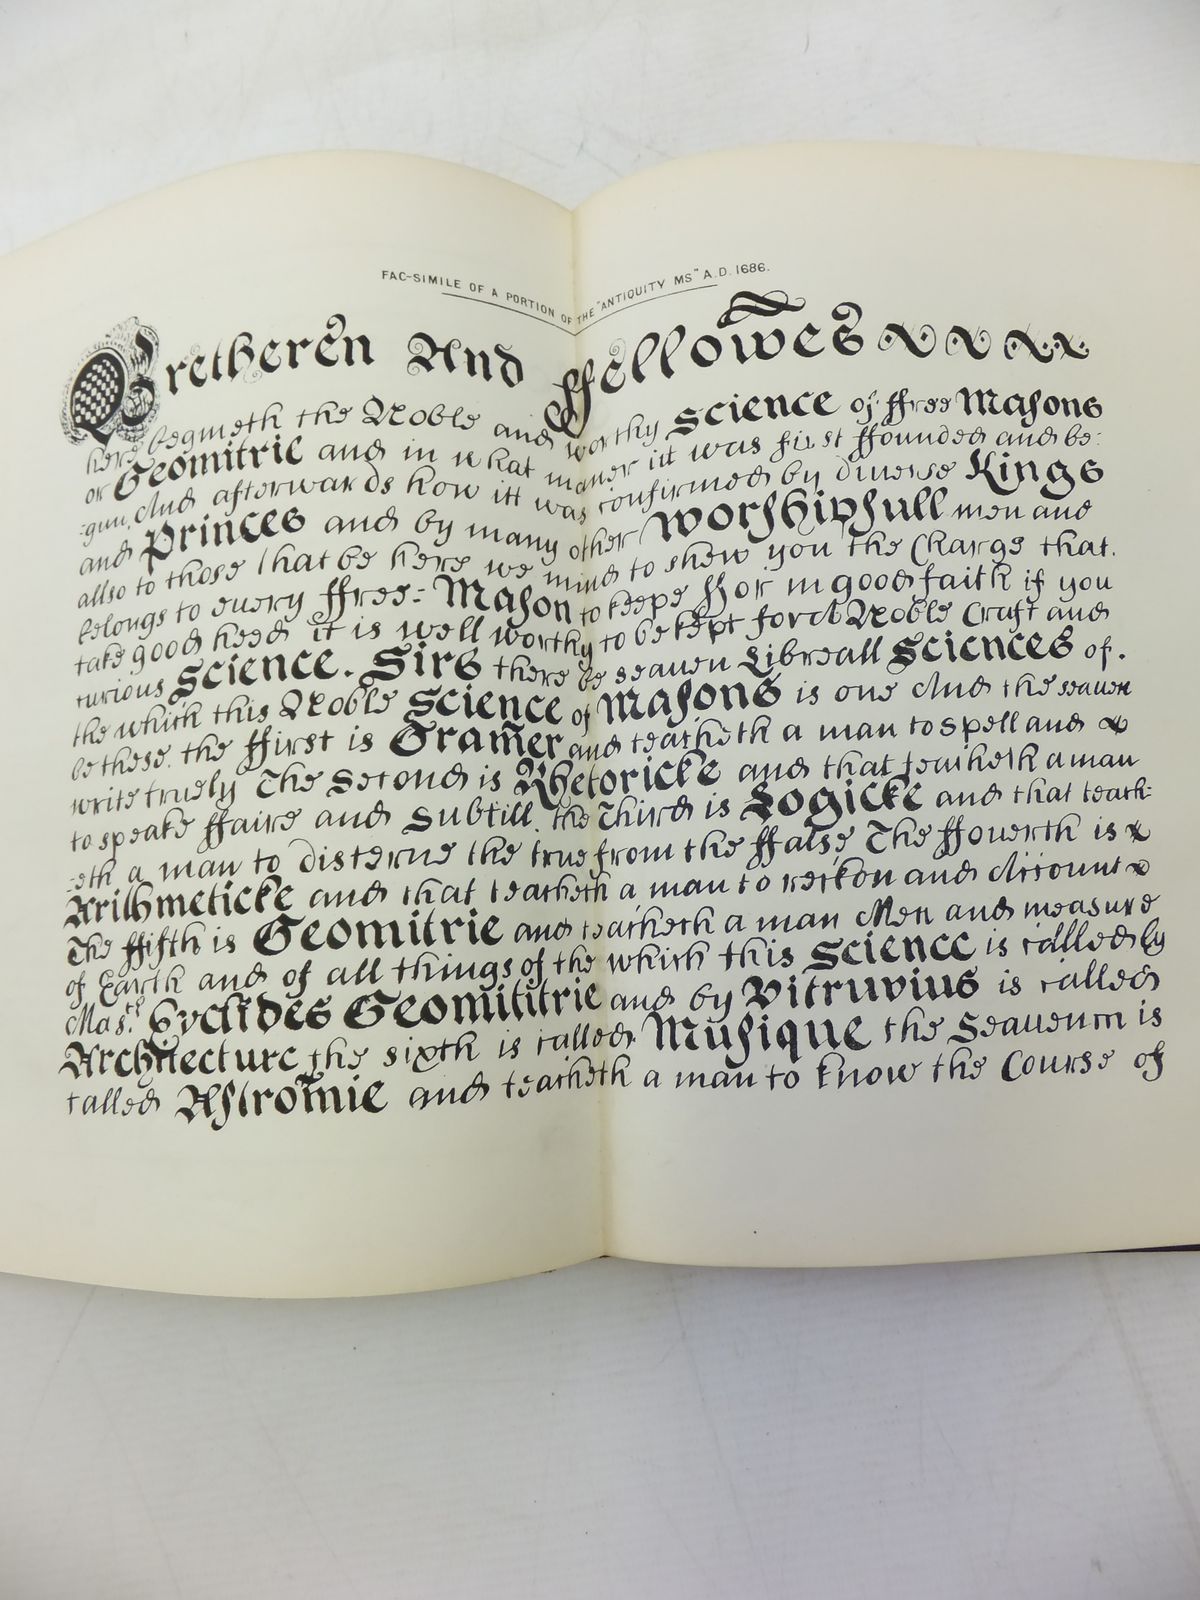 FAC-SIMILE OF A PORTION OF THE "ANTIQUITY MS" A.D. 1686.
Bretheren And ffellowes
here begineth the Noble and worthy Science of ffree Masons
or Geomitrie and in what maner itt was first ffounded and be:
-gun, And afterwards how itt was confirmed by diverse Kings
and Princes and by many other Worshipfull men and
allso to those that be here we mind to shew you the Charge that.
belongs to every ffree= Mason to keepe ffor in good faith if you
take good heed it is well worthy to be kept for A Noble Craft and
curious Science. Sirs there be seaven Libreall Sciences of.
the which this Noble Science of Masons is one And the seaven
be these. the ffirst is Gramer and teacheth a man to spell and
write truely The Second is Rhetoricke and that teacheth a man
to speake ffaire and Subtill. the Third is Logicke and that teach:
-eth a man to discerne the true from the ffalse The ffouerth is
Arithmeticke and that teacheth a man to reckon and Account
The ffifth is Geomitrie and teacheth a man Mett and measure
of Earth and of all things of the which this Science is called by
Mast.r Evclides Geomititrie and by Vitruvius is called
Architecture the sixth is called Musique the Seauenth is
called Astromie and teacheth a man to know the Course of